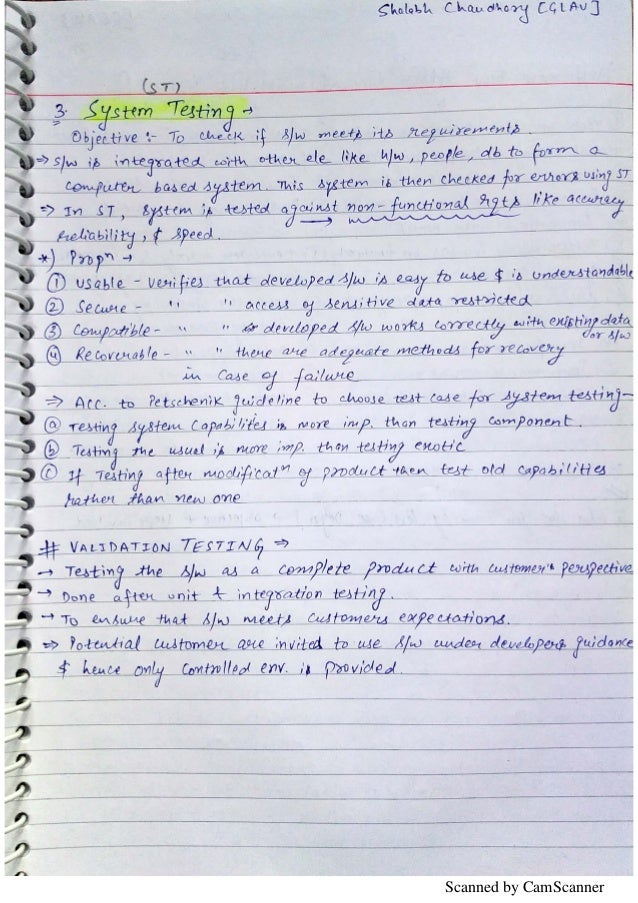 Shalabh Chaudhary [GLAU]
(ST)
3. System Testing →
Objective :- To check if s/w meets its requirements.
⇒ s/w is integrated with other ele like h/w, people, db to form a
computer based system. This system is then checked for errors using ST
⇒ In ST, system is tested against non-functional rqts like accuracy
reliability, & speed.
*) Propⁿ →
① Usable - verifies that developed s/w is easy to use & is understandable
② Secure - " " access of sensitive data restricted
③ Compatible - " " developed s/w works correctly with existing data
or s/w
④ Recoverable - " " there are adequate methods for recovery
in case of failure
⇒ Acc. to Petschenik guideline to choose test case for system testing-
ⓐ Testing system capabilities is more imp. than testing component.
ⓑ Testing the usual is more imp. than testing exotic
ⓒ If Testing after modificatⁿ of product then test old capabilities
rather than new one
# VALIDATION TESTING ⇒
→ Testing the s/w as a complete product with customer's perspective
→ Done after unit & integration testing.
→ To ensure that s/w meets customers expectations.
⇒ Potential customer are invited to use s/w under developers guidance
& hence only controlled env. is provided.
Scanned by CamScanner